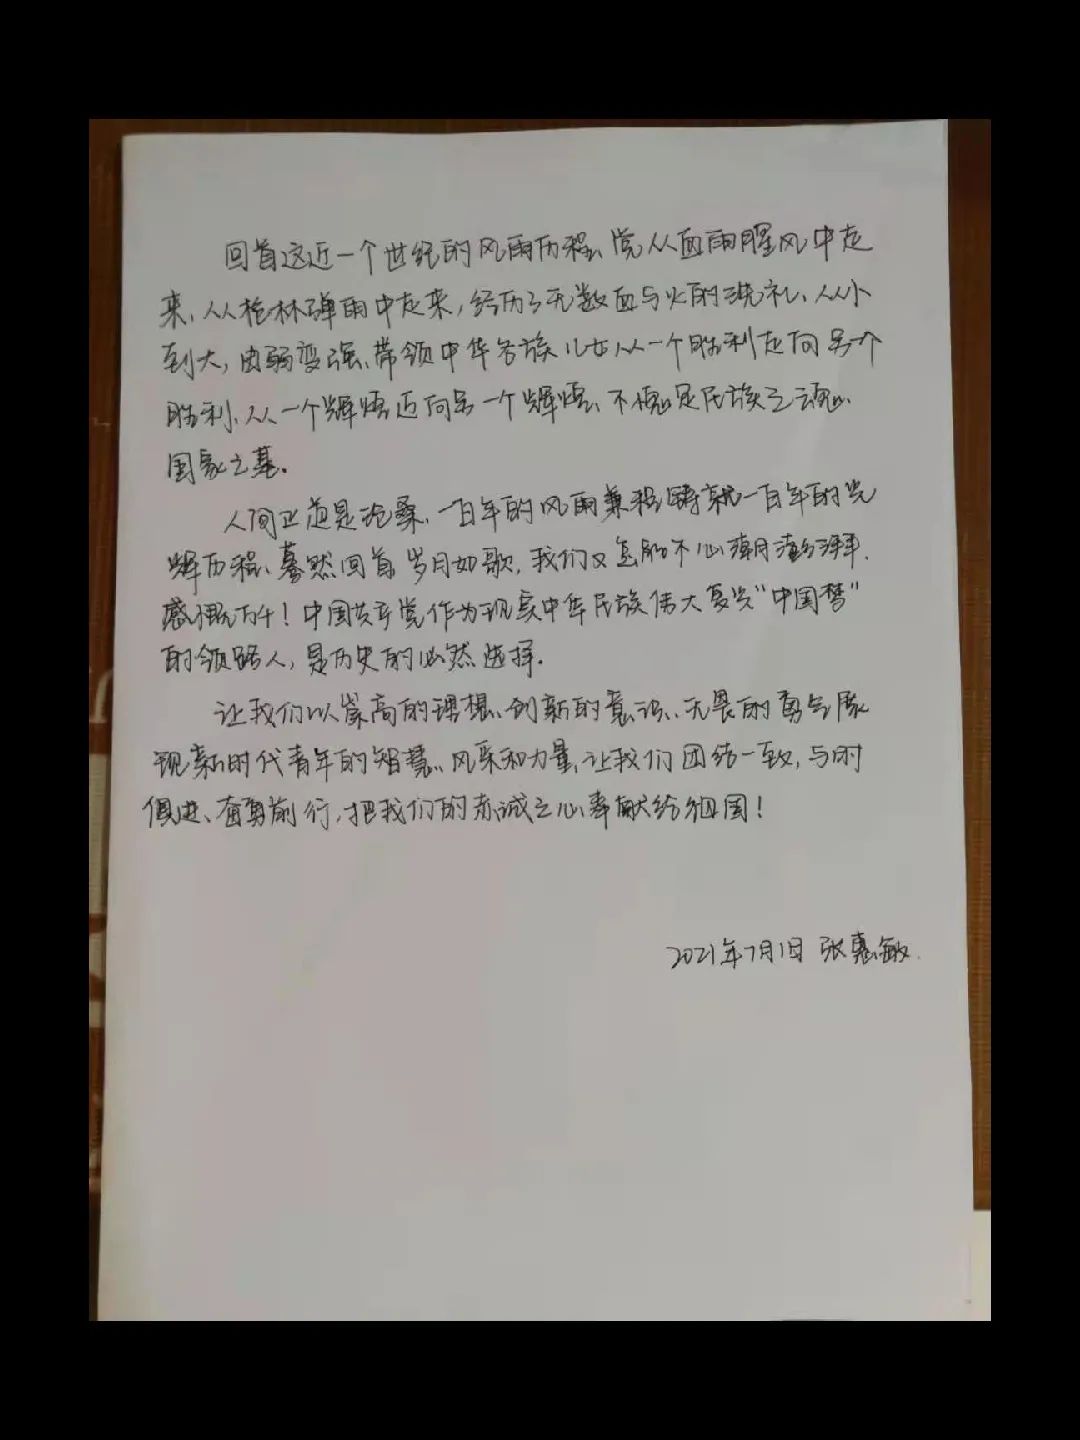 回首这近一个世纪的风雨历程、党从血雨腥风中走
来、从枪林弹雨中走来,经历了无数血与火的洗礼、从小
到大,由弱变强、带领中华各族儿女从一个胜利走向另个
胜利、从一个辉煌迈向另一个辉煌、不愧是民族之魂、
国家之基.
人间正道是沧桑、一百年的风雨兼程铸就一百年的光
辉历程、蓦然回首岁月如歌,我们又怎能不心潮澎湃.
感慨万千!中国共产党作为现实中华民族伟大复兴“中国梦”
的领路人,是历史的必然选择.
让我们以崇高的理想、创新的意识、无畏的勇气展
现新时代青年的智慧、风采和力量,让我们团结一致,与时
俱进、奋勇前行,把我们的赤诚之心奉献给祖国!
2021年7月1日 张惠敏.